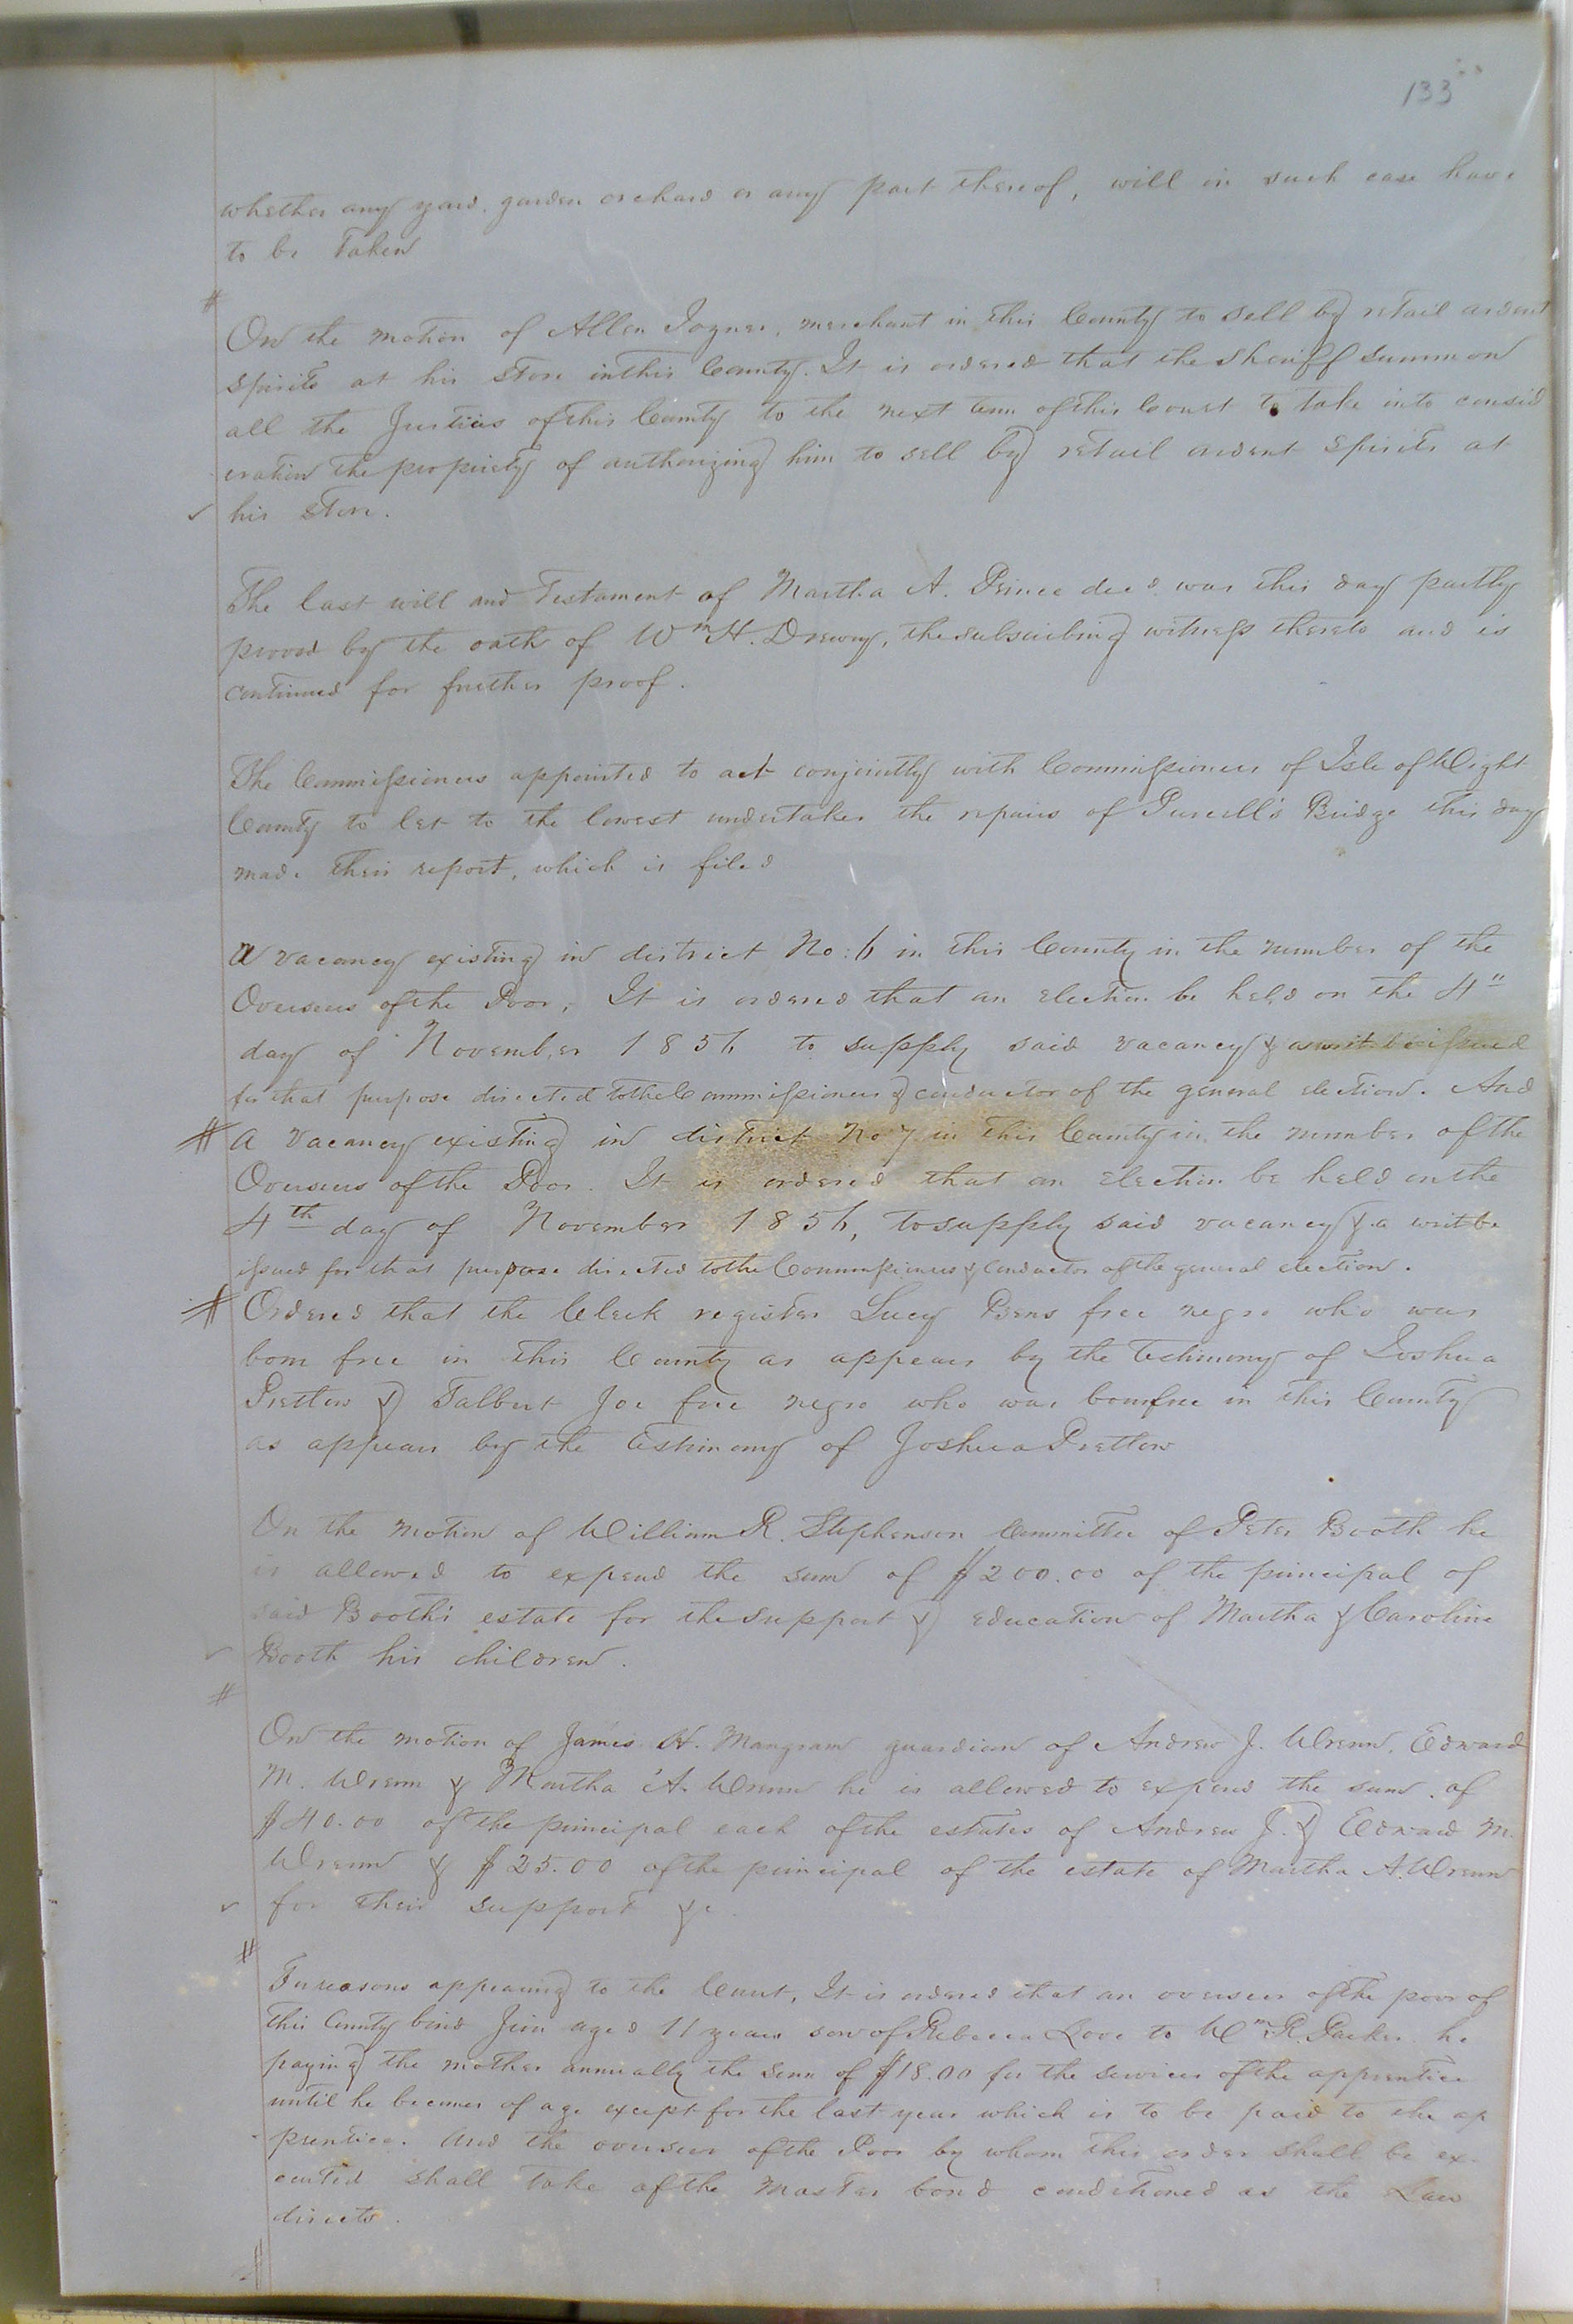 133
whether any yard, garden orchard or any part thereof, will in such case have
to be Taken
#
On the motion of Allen Joyner, merchant in this County to sell by retail ardent
spirits at his store in this County. It is ordered that the Sheriff summon
all the Justices of this County to the next term of this Court to take into consid
eration the propriety of authorizing him to sell by retail ardent spirits at
✓ his store.
The last will and Testament of Martha A. Prince decd. was this day partly
proved by the oath of Wm H. Drewry, the subscribing witness thereto and is
continued for further proof.
The Commissioners appointed to act conjointly with Commissioners of Isle of Wight
County to let to the lowest undertaker the repairs of Purcell's Bridge this day
made their report, which is filed
A vacancy existing in district No: 6 in this County in the number of the
Overseers of the Poor, It is ordered that an election be held on the 4"
day of November 1856 to supply said vacancy & a writ be issued
for that purpose directed to the Commissioners & conductor of the general election. And
# a vacancy existing in district No 7 in this County in the number of the
Overseers of the Poor. It is ordered that an election be held on the
4th day of November 1856, to supply said vacancy & a writ be
issued for that purpose directed to the Commissioners & Conductor of the general election.
# Ordered that the Clerk register Lucy Benn free negro who was
born free in this County as appears by the testimony of Joshua
Pretlow & Talbert Joe free negro who was born free in this County
as appears by the testimony of Joshua Pretlow
On the motion of William R. Stephenson Committee of Peter Booth he
is allowed to expend the sum of $200.00 of the principal of
said Booth's estate for the support & education of Martha & Caroline
✓ Booth his children.
#
On the motion of James H. Mangram guardian of Andrew J. Wrenn, Edward
M. Wrenn & Martha A. Wrenn he is allowed to expend the sum of
$40.00 of the principal each of the estates of Andrew J. & Edward M.
Wrenn & $25.00 of the principal of the estate of Martha A. Wrenn
✓ for their support &c.
#
For reasons appearing to the Court, It is ordered that an overseer of the poor of
this County bind Jim aged 11 years son of Rebecca Love to Wm R. Parker he
paying the mother annually the sum of $18.00 for the services of the apprentice
until he becomes of age except for the last year which is to be paid to the ap
prentice. And the overseer of the Poor by whom this order shall be ex-
ecuted shall take of the Master bond conditioned as the Law
directs.
#